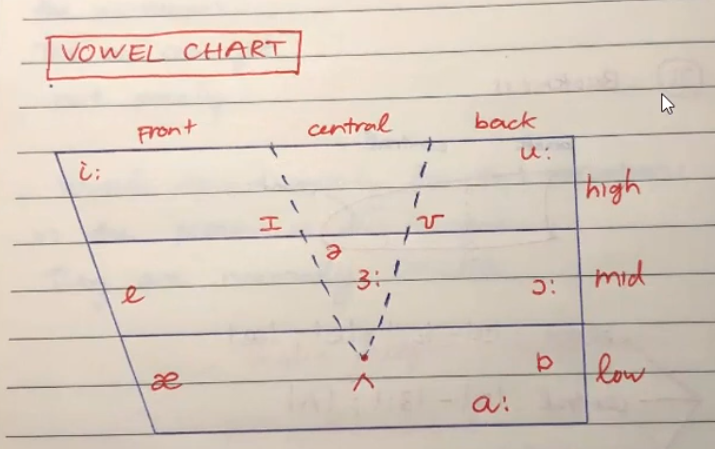 VOWEL CHART
Front central back
i: u:
high
I ʊ
ə
e ɜ: ɔ: mid
æ ʌ ɒ low
a: